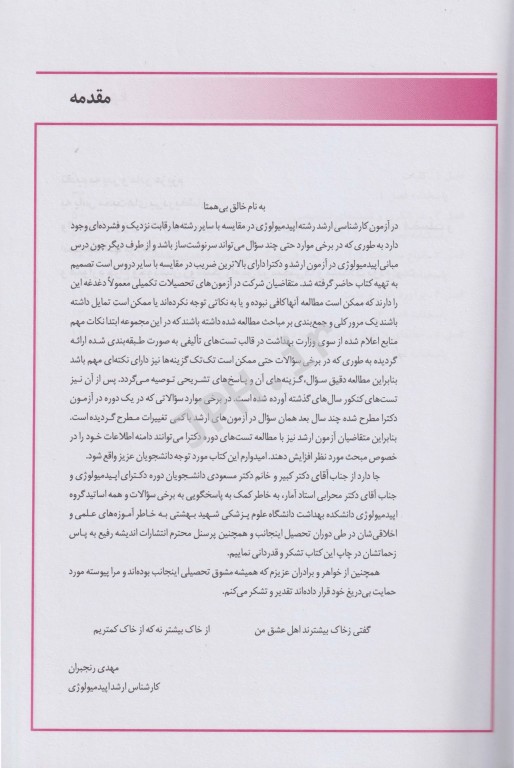 مقدمه
به نام خالق بی‌همتا
در آزمون کارشناسی ارشد رشته اپیدمیولوژی در مقایسه با سایر رشته‌ها رقابت نزدیک و فشرده‌ای وجود
دارد به طوری که در برخی موارد حتی چند سؤال می‌تواند سرنوشت‌ساز باشد و از طرف دیگر چون درس
مبانی اپیدمیولوژی در آزمون ارشد و دکترا دارای بالاترین ضریب در مقایسه با سایر دروس است تصمیم
به تهیه کتاب حاضر گرفته شد. متقاضیان شرکت در آزمون‌های تحصیلات تکمیلی معمولاً دغدغه این
را دارند که ممکن است مطالعه آنها کافی نبوده و یا به نکاتی توجه نکرده‌اند یا ممکن است تمایل داشته
باشند یک مرور کلی و جمع‌بندی بر مباحث مطالعه شده داشته باشند که در این مجموعه ابتدا نکات مهم
منابع اعلام شده از سوی وزارت بهداشت در قالب تست‌های تألیفی به صورت طبقه‌بندی شده ارائه
گردیده به طوری که در برخی سؤالات حتی ممکن است تک‌تک گزینه‌ها نیز دارای نکته‌ای مهم باشد
بنابراین مطالعه دقیق سؤال، گزینه‌های آن و پاسخ‌های تشریحی توصیه می‌گردد. پس از آن نیز
تست‌های کنکور سال‌های گذشته آورده شده است. در برخی موارد سؤالاتی که در یک دوره در آزمون
دکترا مطرح شده چند سال بعد همان سؤال در آزمون‌های ارشد با کمی تغییرات مطرح گردیده است.
بنابراین متقاضیان آزمون ارشد نیز با مطالعه تست‌های دوره دکترا می‌توانند دامنه اطلاعات خود را در
خصوص مبحث مورد نظر افزایش دهند. امیدوارم این کتاب مورد توجه دانشجویان عزیز واقع شود.
جا دارد از جناب آقای دکتر کبیر و خانم دکتر مسعودی دانشجویان دوره دکترای اپیدمیولوژی و
جناب آقای دکتر محرابی استاد آمار، به خاطر کمک به پاسخگویی به برخی سؤالات و همه اساتید گروه
اپیدمیولوژی دانشکده بهداشت دانشگاه علوم پزشکی شهید بهشتی به خاطر آموزه‌های علمی و
اخلاقی‌شان در طی دوران تحصیل اینجانب و همچنین پرسنل محترم انتشارات اندیشه رفیع به پاس
زحماتشان در چاپ این کتاب تشکر و قدردانی نماییم.
همچنین از خواهر و برادران عزیزم که همیشه مشوق تحصیلی اینجانب بوده‌اند و مرا پیوسته مورد
حمایت بی‌دریغ خود قرار داده‌اند تقدیر و تشکر می‌کنم.
گفتی ز خاک بیشترند اهل عشق من از خاک بیشتر نه که از خاک کمتریم
مهدی رنجبران
کارشناس ارشد اپیدمیولوژی